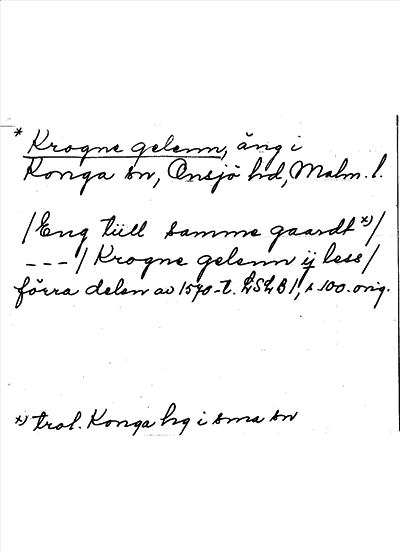 * Krogne gelenn, äng i
Konga sn, Onsjö hd, Malm. l.
/Eng tiill samme gaardt x)/
---/ Krogne gelenn ij less/
förra delen av 1570-t. LSLB 1, s 100. orig.
x) trol. Konga hg i sma sn